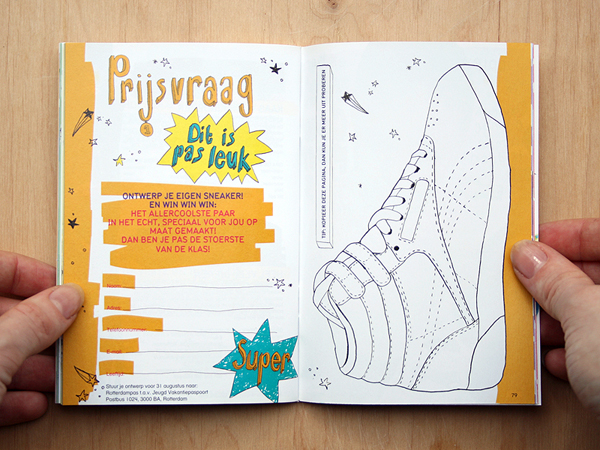 Prijsvraag
Dit is
pas leuk
ONTWERP JE EIGEN SNEAKER!
EN WIN WIN WIN:
HET ALLERCOOLSTE PAAR
IN HET ECHT, SPECIAAL VOOR JOU OP
MAAT GEMAAKT!
DAN BEN JE PAS DE STOERSTE
VAN DE KLAS!
Naam
Adres
Telefoonnummer
E-mail
Leeftijd
Super
Stuur je ontwerp voor 31 augustus naar:
Rotterdampas t.a.v. Jeugd Vakantiepaspoort
Postbus 1024, 3000 BA, Rotterdam.
TIP: KOPIEER DEZE PAGINA, DAN KUN JE ER MEER UIT PROBEREN
79